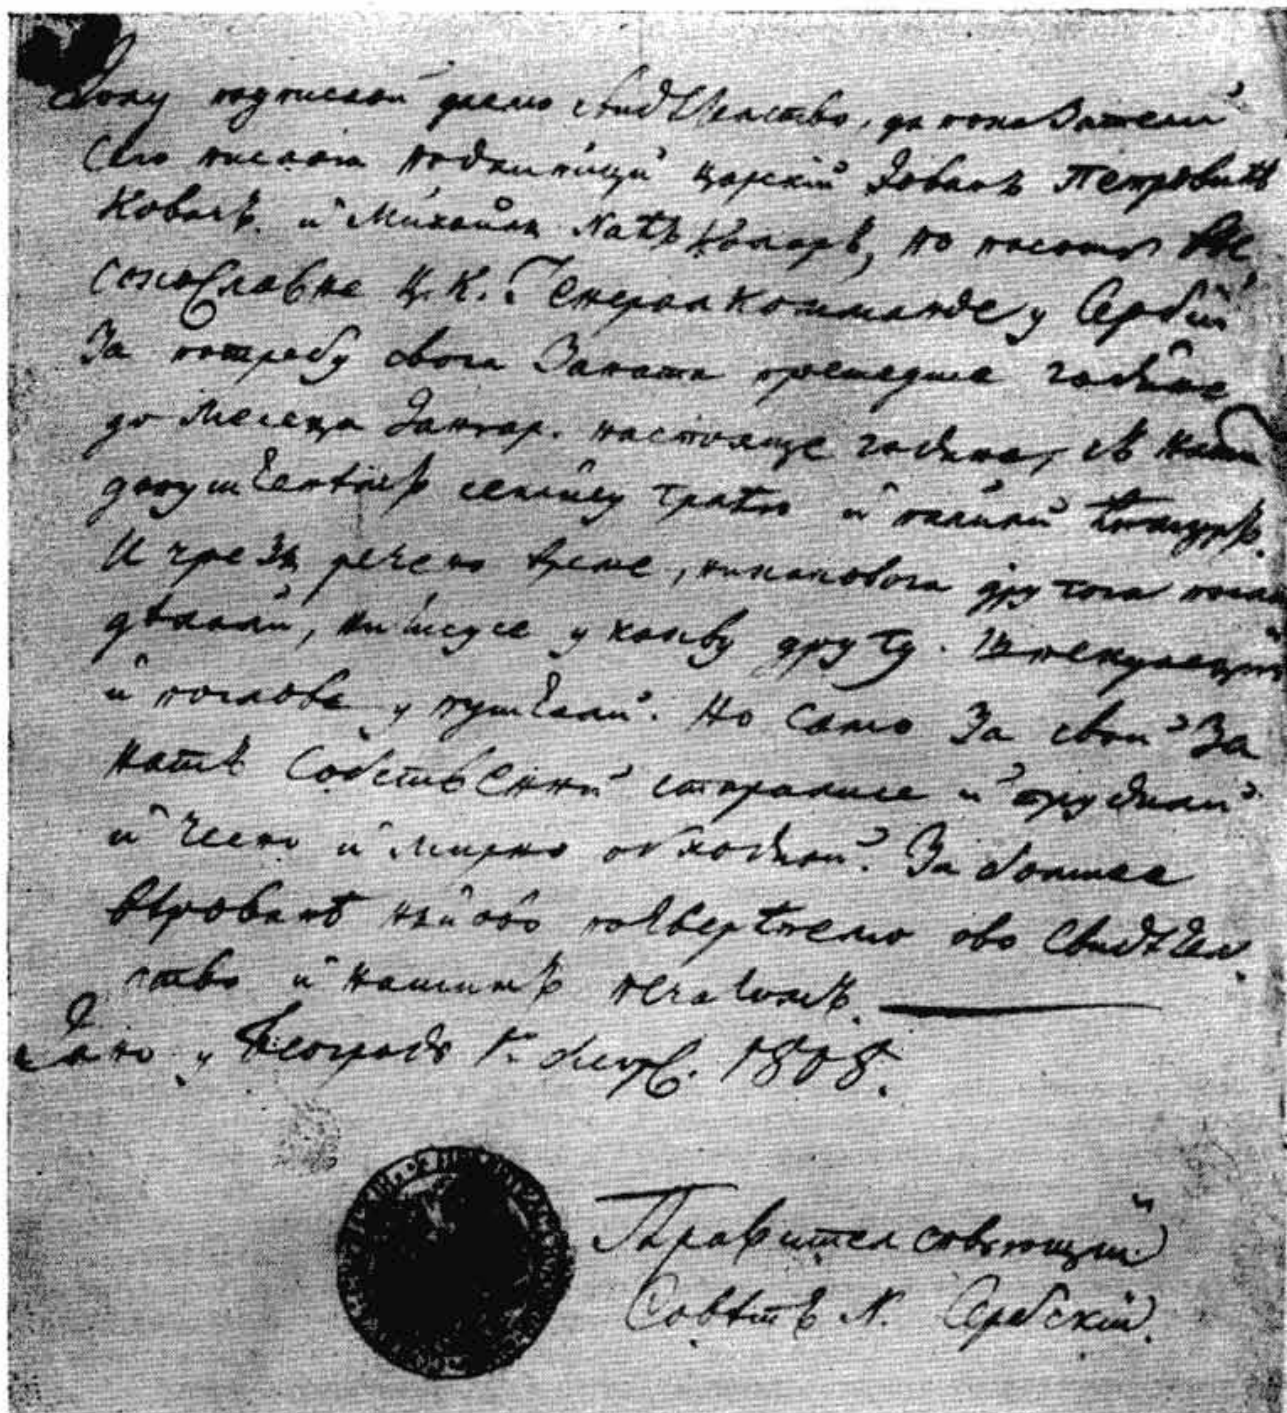 Долу подписани даемо свидѣтелство, да показатели
сего писма поданици царскiй Јованъ Петровичъ
Ковачъ. и Михаилъ Колъарь, по пасошу Вы-
сокославне Ц. К. Генералкомманде у Сербiи
За потребу свога Заната прешедше године
до Месеца Јануар. настояще године, съ нашимъ
допущенiемъ секли су грађю и палили
И чрезъ речено време, никаковога другога посла
дѣлали, нити се у какву другу
и послове упущали. Но само За свой За-
натъ Собственный старалисе и трудили
и Чесно и мирно обходили. За болшее
вѣрованѣ потверђуемо ово Свидѣтел-
ство и нашимъ печатомъ.
Дано у Београду 1808.
Правителствующiй
Совѣтъ Н. Сербскiй.